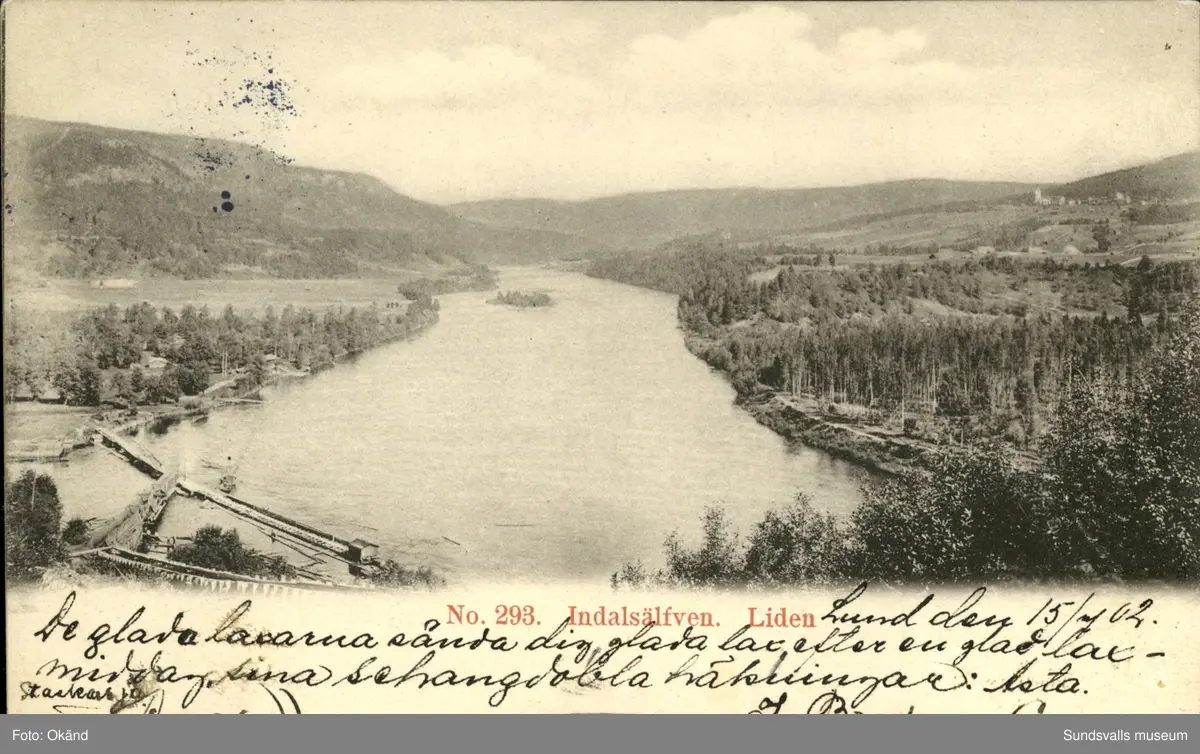 No. 293. Indalsälfven. Liden
Lund den 15/7 02.
De glada laxarna sända dig glada lax, efter en glad lax-
middag, sina schangdobla häkningar: Asta.
Foto: Okänd
Sundsvalls museum